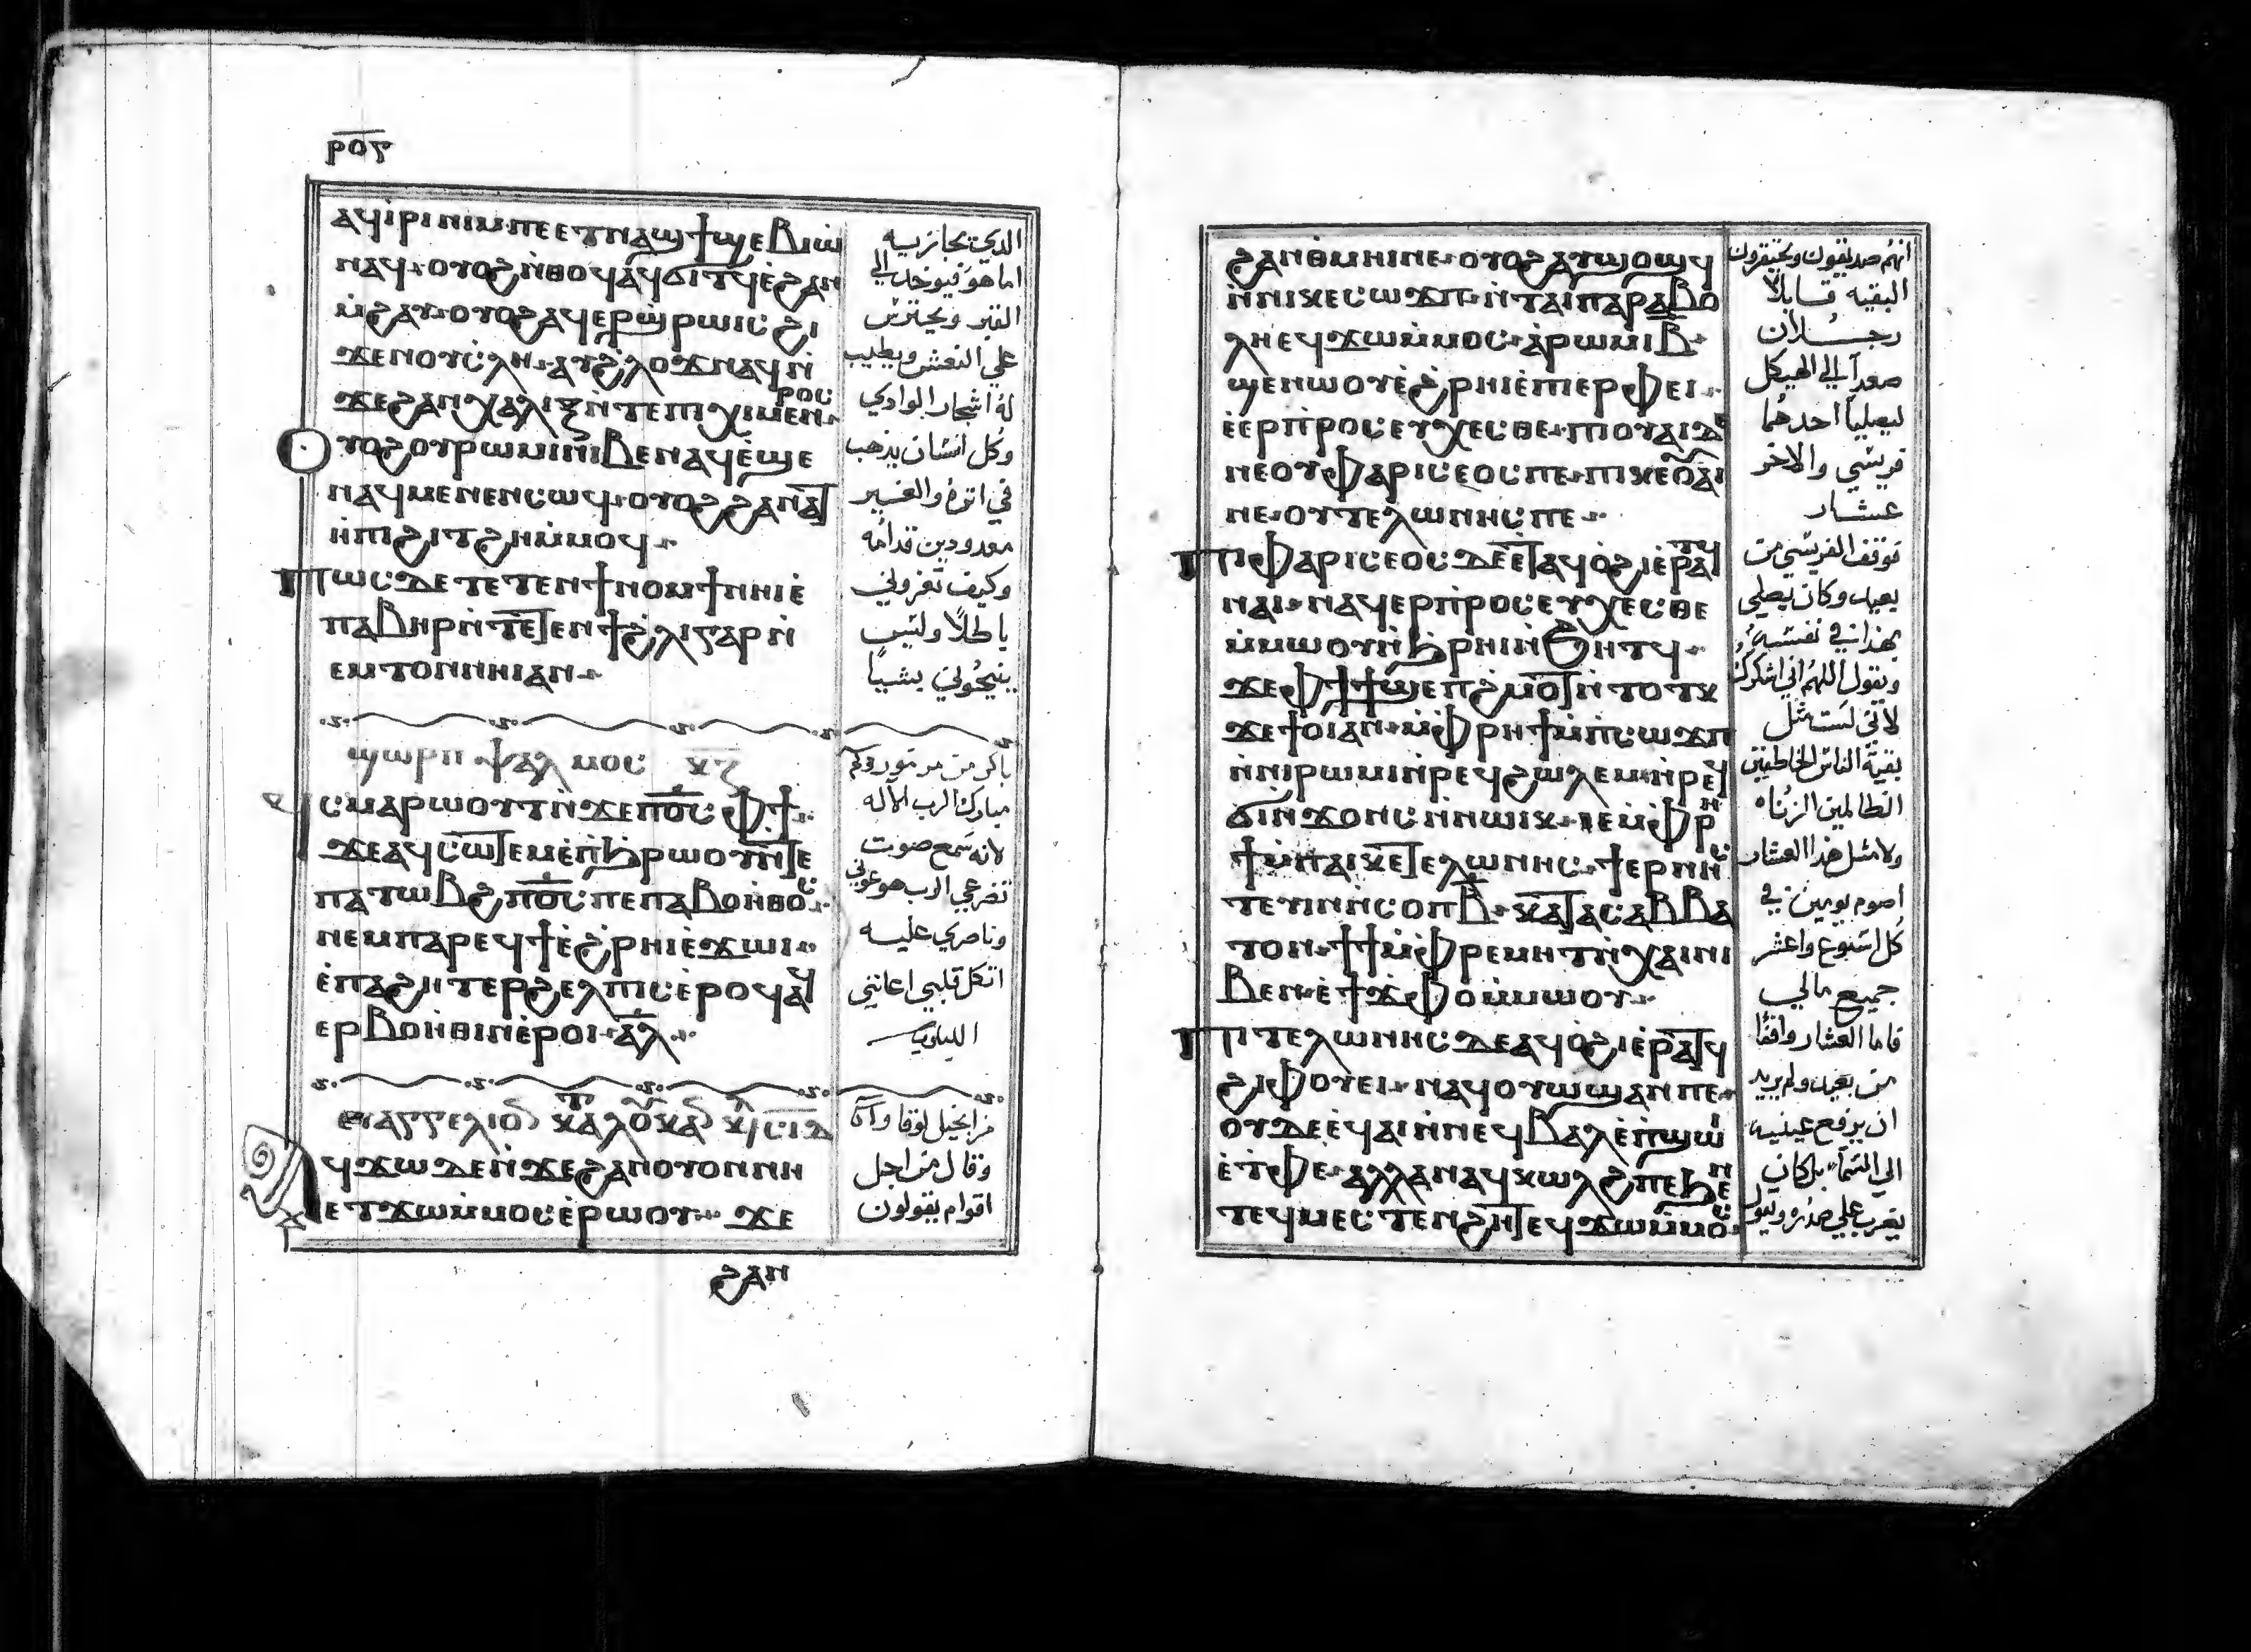 ⲣⲟⲋ
ⲁϥⲓⲣⲓ ⲛⲓⲙ ⲡⲉⲉⲧⲛⲁϣϯϣⲉⲃⲓⲱ
ⲛⲁϥ ⲟⲩⲟϩ ⲛ̇ⲑⲟϥ ⲁⲩϭⲓⲧϥ ⲉ̇ϩⲁⲛ
ⲙ̇ϩⲁⲩ ⲟⲩⲟϩ ⲁϥⲉⲣϣ̇ⲣⲱⲓⲥ ϩⲓ
ϫⲉⲛ ⲟⲩⲥ̇ⲗⲏ ⲁⲩϩ̇ⲗⲟϫ ⲛⲁϥ ⲛ̇
ϫⲉϩⲁⲛⲭⲁⲗⲓⲝ ⲛ̇ⲧⲉⲡⲓⲭⲓⲙⲉⲛⲣⲟⲥ
ⲟⲩⲟϩ ⲟⲩⲣⲱⲙⲓ ⲛⲓⲃⲉⲛ ⲁϥⲉ̇ϣⲉ
ⲛⲁϥ ⲙⲉⲛⲉⲛⲥⲱϥ ⲟⲩⲟϩ ϩⲁⲛⲁⲧ
ⲏ̇ⲡⲓ ϩⲓⲧϩⲏ ⲙ̇ⲙⲟϥ
ⲡⲱⲥ ⲇⲉ ⲧⲉⲧⲉⲛϯⲛⲟⲙϯ ⲛⲏⲓ ⲉ̇
ⲡⲁⲃⲏⲣ ⲛ̇ⲧⲉⲧⲉⲛϯϩ̇ⲗⲓ ⲅⲁⲣ ⲛ̇
ⲉⲙⲧⲟⲛ ⲛⲏⲓ ⲁⲛ
ϣⲱⲣⲡ ⲯⲁⲗⲙⲟⲥ ⲕⲍ
ϥⲥⲙⲁⲣⲱⲟⲩⲧ ⲛ̇ϫⲉⲡⲟ̅ⲥ̅ ⲫϯ
ϫⲉ ⲁϥⲥⲱⲧⲉⲙ ⲉ̇ⲡϧ̇ⲣⲱⲟⲩ ⲛ̇ⲧⲉ
ⲡⲁⲧⲱⲃϩ ⲡⲟ̅ⲥ̅ ⲡⲉ ⲡⲁⲃⲟⲏⲑⲟⲥ
ⲛⲉⲙ ⲡⲁⲣⲉϥϯ ⲉ̇ϩ̇ⲣⲏⲓ ⲉ̇ϫⲱⲓ
ⲉ̇ⲡⲁϩⲏⲧ ⲉⲣϩⲉⲗⲡⲓⲥ ⲉ̇ⲣⲟϥ ⲁϥ
ⲉⲣⲃⲟⲏⲑⲓⲛ ⲉ̇ⲣⲟⲓ ⲁ̅ⲗ̅
ⲉⲩⲁⲅⲅⲉⲗⲓⲟⲛ ⲕⲁⲧⲁ ⲗⲟⲩⲕⲁⲛ
ⲁϥϫⲱ ⲇⲉ ⲛ̇ϫⲉϩⲁⲛⲟⲩⲟⲛ ⲛⲏ
ⲉⲧϫⲱ ⲙ̇ⲙⲟⲥ ⲉ̇ⲣⲱⲟⲩ ϫⲉ
ϩⲁⲛ
الدي يجازيه
اما هو فيوخد الي
القبر ويحترس
علي النعش ويطيب
له اشجار الوادي
وكل انسان يذهب
في اثره والغير
معدودين قدامه
وكيف تعزوني
باطلا وليس
ينيحوني بشيا
باكر من مزمور
مبارك الرب الاله
لانه سمع صوت
تضرعي الرب هو عوني
وناصري عليه
اتكل قلبي اعانني
الليلويا
من انجيل لوقا
وقال من اجل
اقوام يقولون
ϩⲁⲛⲑ̇ⲙⲏⲓ ⲛⲉ ⲟⲩⲟϩ ⲁⲩϣⲟϣϥ
ⲛ̇ⲛⲓⲕⲉⲥⲱϫⲡ ⲛ̇ⲧⲁⲓⲡⲁⲣⲁⲃⲟ
ⲗⲏ ⲉϥϫⲱ ⲙ̇ⲙⲟⲥ ⲁ̇ⲣⲱⲙⲓ ⲃ̅
ϣⲉⲛⲱⲟⲩ ⲉ̇ϩ̇ⲣⲏⲓ ⲉ̇ⲡⲓⲉⲣⲫⲉⲓ
ⲉ̇ⲉⲣⲡ̇ⲣⲟⲥⲉⲩⲭⲉⲥⲑⲉ ⲡⲓⲟⲩⲁⲓ ⲇⲉ
ⲛⲉ ⲟⲩⲫⲁⲣⲓⲥⲉⲟⲥ ⲡⲉ ⲡⲓⲕⲉⲟⲩⲁⲓ
ⲛⲉ ⲟⲩⲧⲉⲗⲱⲛⲏⲥ ⲡⲉ
ⲡⲓⲫⲁⲣⲓⲥⲉⲟⲥ ⲇⲉ ⲉ̇ⲧⲁϥⲟ̇ϩⲓ ⲉ̇ⲣⲁⲧϥ
ⲛⲁⲓ ⲛⲁϥⲉⲣⲡ̇ⲣⲟⲥⲉⲩⲭⲉⲥⲑⲉ
ⲙ̇ⲙⲱⲟⲩ ⲛ̇ϧ̇ⲣⲏⲓ ⲛ̇ϧⲏⲧϥ
ϫⲉ ⲫϯ ϯϣⲉⲡϩ̇ⲙⲟⲧ ⲛ̇ⲧⲟⲧⲕ
ϫⲉ ϯⲟⲓ ⲁⲛ ⲙ̇ⲫⲣⲏϯ ⲙ̇ⲡⲥⲱϫⲡ
ⲛ̇ⲛⲓⲣⲱⲙⲓ ⲛ̇ⲣⲉϥϩⲱⲗⲉⲙ ⲛ̇ⲣⲉϥ
ϭⲓⲛ̇ϫⲟⲛⲥ ⲛ̇ⲛⲱⲓⲕ ⲓⲉ ⲙ̇ⲫⲣⲏ
ϯ ⲙ̇ⲡⲁⲓⲕⲉⲧⲉⲗⲱⲛⲏⲥ ϯⲉⲣⲛⲏⲥ
ⲧⲉⲩⲓⲛ ⲛ̇ⲥⲟⲡ ⲃ̅ ⲕⲁⲧⲁ ⲥⲁⲃⲃⲁ
ⲧⲟⲛ ϯϯ ⲙ̇ⲫⲣⲉⲙⲏⲧ ⲛ̇ⲭⲁⲓ ⲛⲓ
ⲃⲉⲛ ⲉ̇ϯϫⲫⲟ ⲙ̇ⲙⲱⲟⲩ
ⲡⲓⲧⲉⲗⲱⲛⲏⲥ ⲇⲉ ⲁϥⲟ̇ϩⲓ ⲉ̇ⲣⲁⲧϥ
ϩⲓⲫⲟⲩⲉⲓ ⲛⲁϥⲟⲩⲱϣ ⲁⲛ ⲡⲉ
ⲟⲩⲇⲉ ⲉ̇ϥⲁⲓ ⲛ̇ⲛⲉϥⲃⲁⲗ ⲉ̇ⲡϣⲱⲓ
ⲉ̇ⲧ̇ⲫⲉ ⲁⲗⲗⲁ ⲛⲁϥⲕⲱⲗϩ ⲡⲉ ϧⲉⲛ
ⲧⲉϥⲙⲉⲥⲧⲉⲛϩⲏⲧ ⲉϥϫⲱ ⲙ̇ⲙⲟⲥ
انهم صديقون ويحتقرون
البقيه قايلا
رجلان
صعدا الي الهيكل
ليصليا احدهما
فريسي والاخر
عشار
فوقف الفريسي من
بعيد وكان يصلي
بهذا في نفسه
ويقول اللهم اني اشكرك
لانني لست مثل
بقية الناس الخاطفين
الظالمين الزناه
ولا مثل هذا العشار
اصوم يومين في
كل اسبوع واعشر
جميع مالي
فاما العشار واقفا
من بعيد ولم يريد
ان يرفع عينيه
الي السما بل كان
يضرب علي صدره ويقول